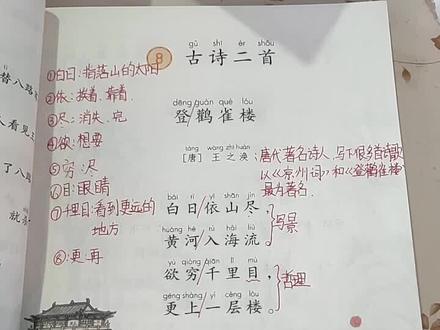 替八路
看见
了八路
就
gǔ shī èr shǒu
8 古诗二首
①白日:指落山的太阳
②依:挨着、靠着
③尽:消失、完
④欲:想要
⑤穷:尽
⑥目:眼睛
⑦千里目:看到更远的
地方
⑧更:再
dēng guàn què lóu
登鹳雀楼
táng wáng zhī huàn
[唐] 王之涣
唐代著名诗人,写下很多首诗歌
以《凉州词》和《登鹳雀楼》
最为著名
bái rì yī shān jìn
白日/依山尽,
huáng hé rù hǎi liú
黄河/入海流。
写景
yù qióng qiān lǐ mù
欲穷/千里目,
gèng shàng yì céng lóu
更上/一层楼。
哲理